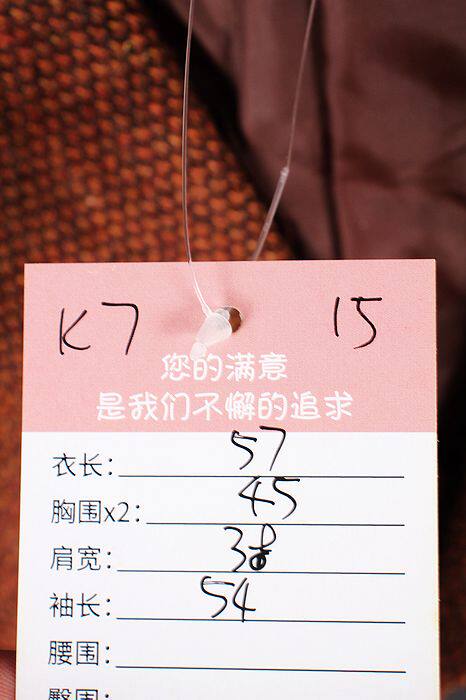 K7 15
您的满意
是我们不懈的追求
衣长: 57
胸围x2: 45
肩宽: 38
袖长: 54
腰围: